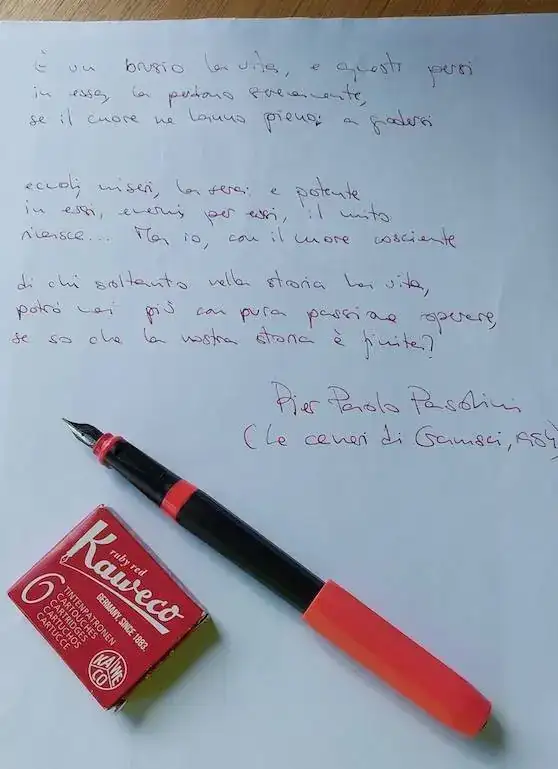 È un brusio la vita, e questi persi
in essa, la perdono serenamente,
se il cuore ne hanno pieno: a godersi
eccoli, miseri, la sera: e potente
in essi, inermi, per essi, il mito
rinasce... Ma io, con il cuore cosciente
di chi soltanto nella storia ha vita,
potrò mai più con pura passione operare,
se so che la nostra storia è finita?
Pier Paolo Pasolini
(Le ceneri di Gramsci, 1954)
ruby red
Kaweco
GERMANY, SINCE 1883.
6
TINTENPATRONEN
CARTOUCHES
CARTRIDGES
CARTUCHOS
CARTUCCE
KA
WE
CO